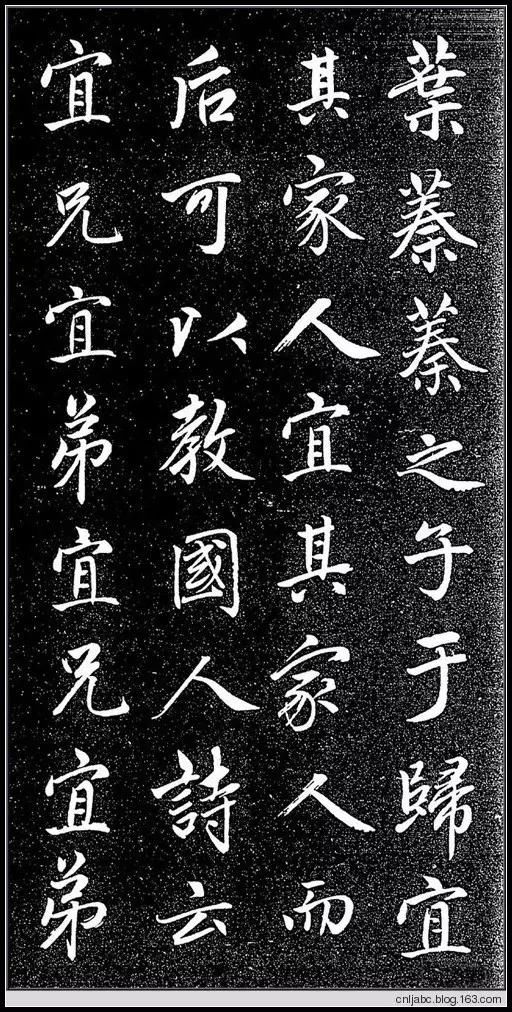 葉蓁蓁之子于歸宜
其家人宜其家人而
后可以教國人詩云
宜兄宜弟宜兄宜弟
cnljabc.blog.163.com